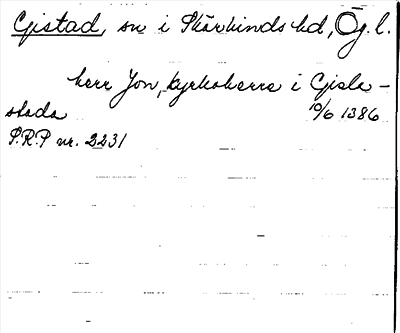 Gistad, sn i Skärkinds hd, Ög. l.
herr Jon, kyrkoherre i Gisla-
stada 10/6 1386
S.R.P nr. 2231